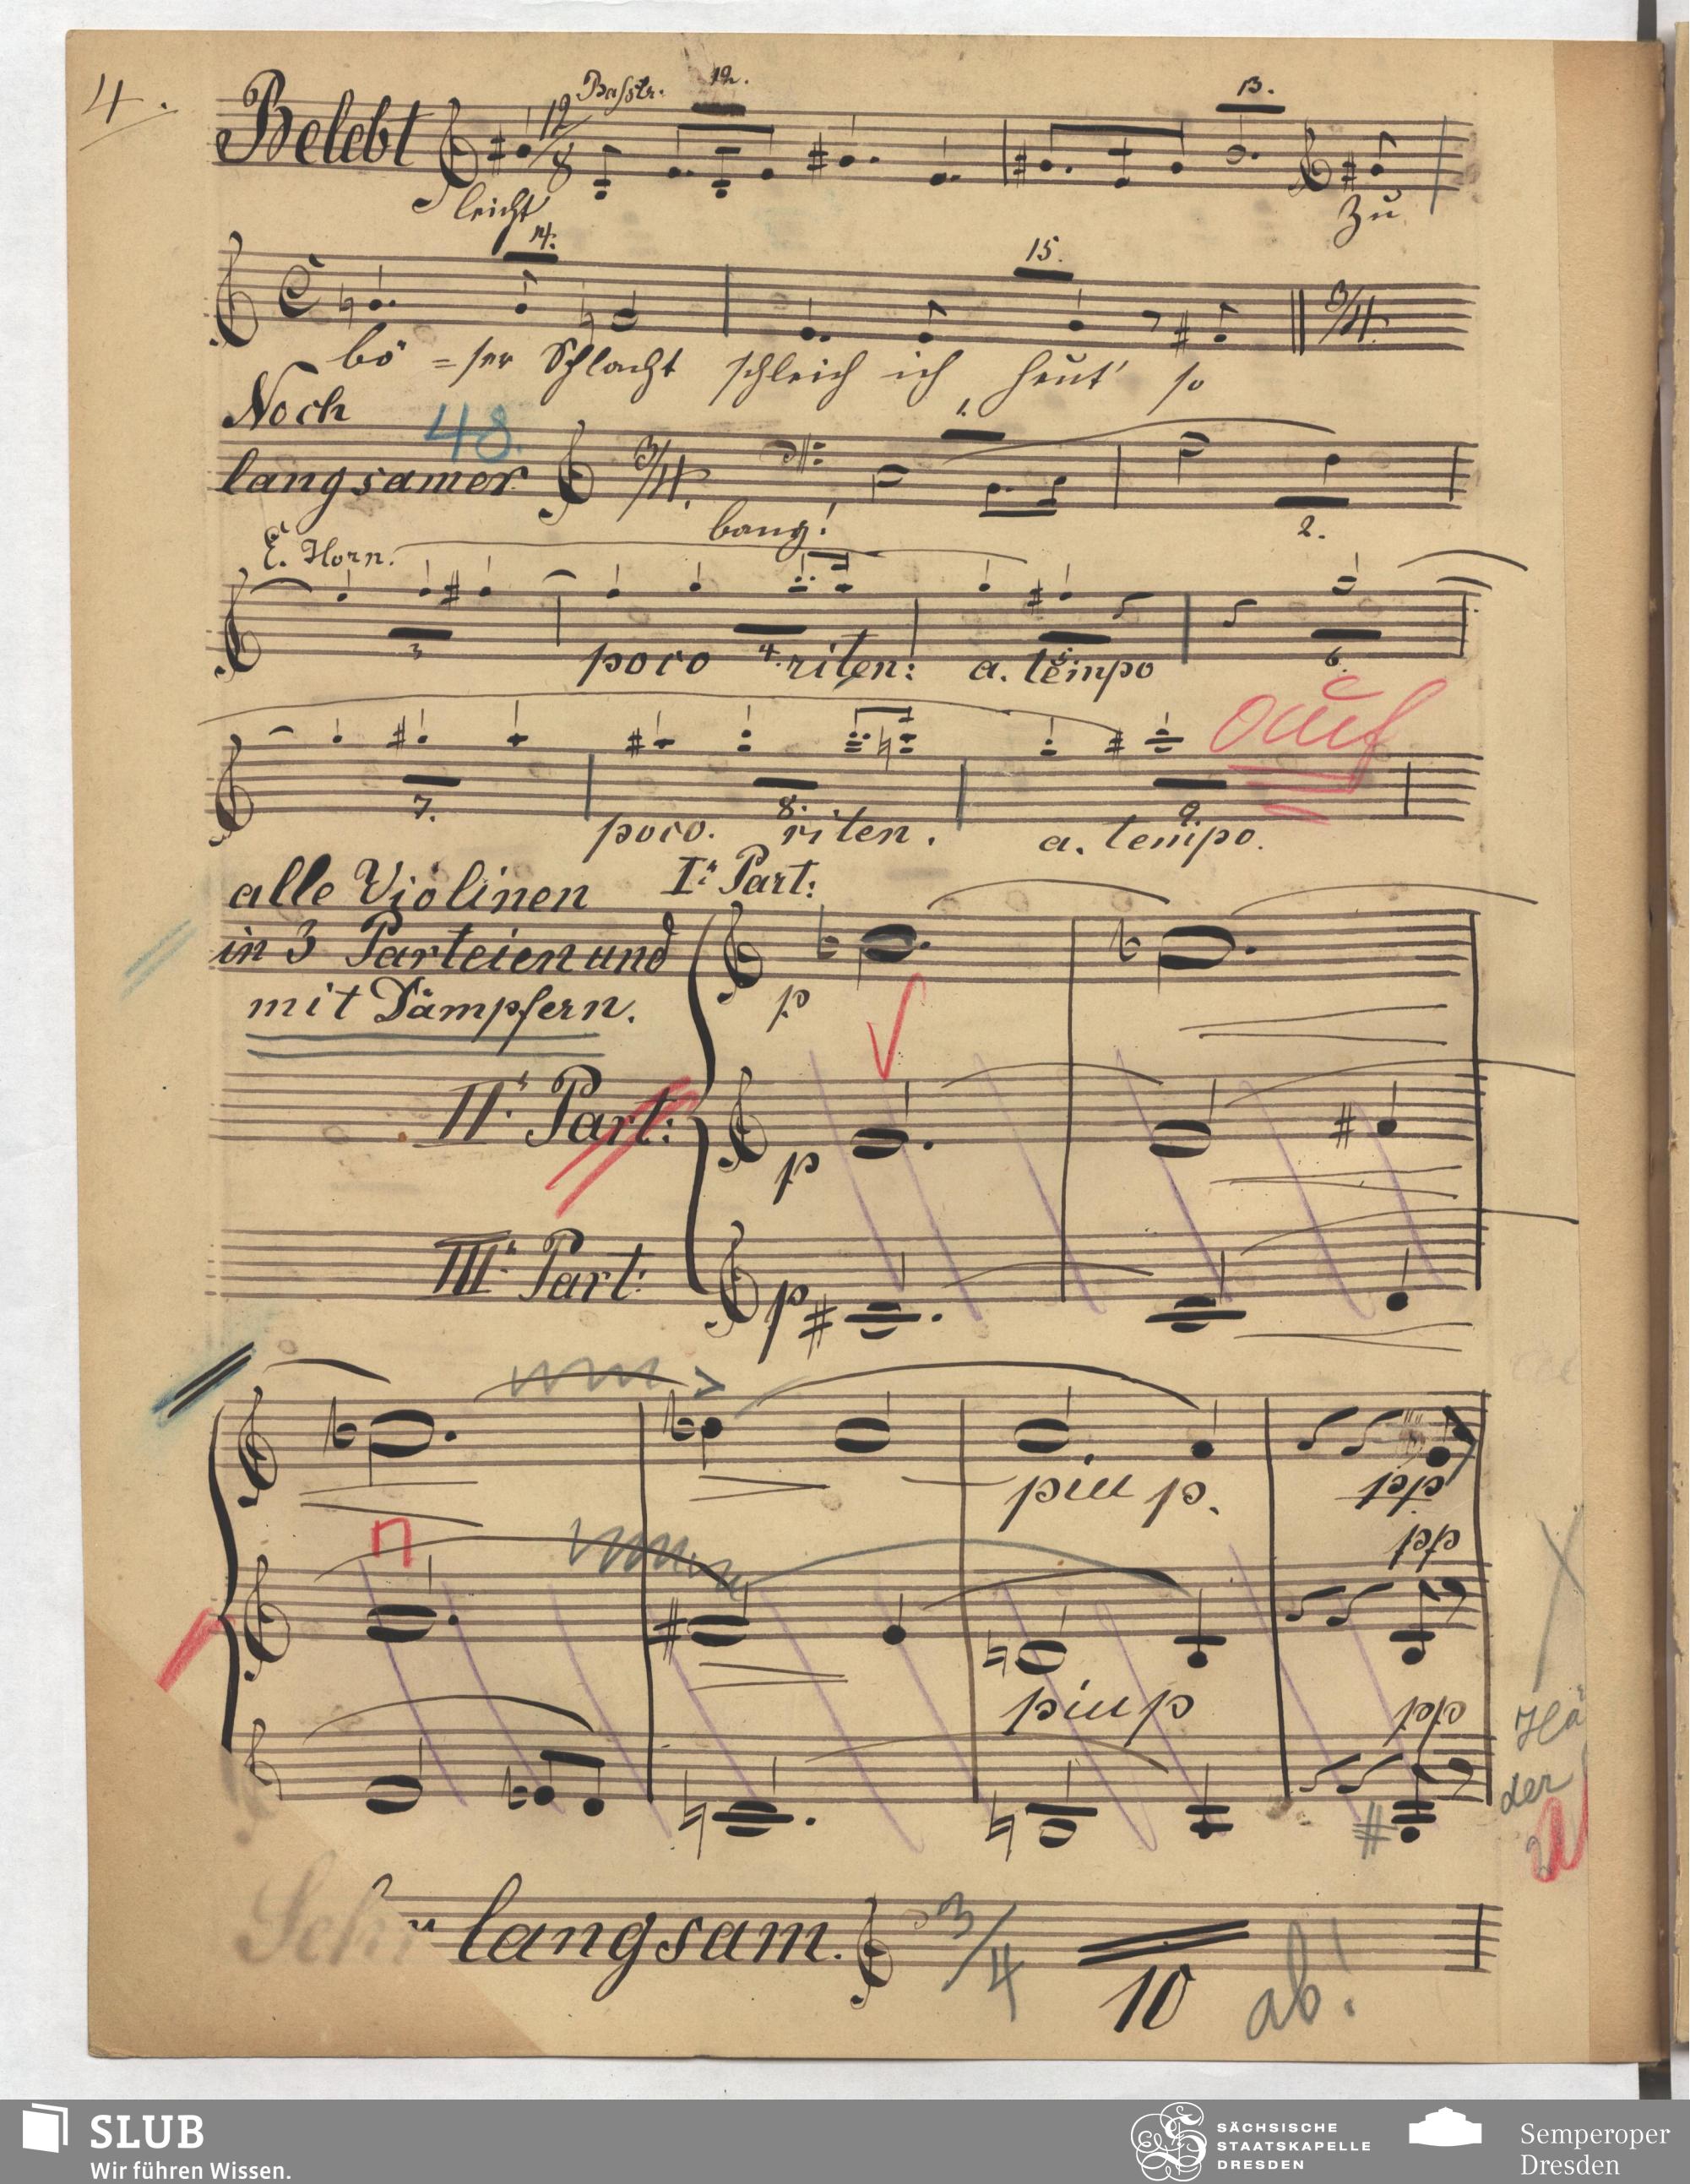 4.
Belebt 12/8 Basstr. 12. 13.
leicht Zu
14. 15.
bö=ser Schlacht schleich ich heut' so
3/4
Noch 48. 1.
langsamer 3/4.
bang! 2.
E. Horn.
3 poco 4. riten: 5. a. tempo 6.
auf
7. poco. 8. riten. 9. a. tempo.
alle Violinen I. Part:
in 3 Parteien und
mit Dämpfern. p
II. Part: p
III. Part: p
piu p. pp
pp
piu p pp
Hä
der
Sehr langsam. 3/4 10 ab!
SLUB
Wir führen Wissen.
SÄCHSISCHE
STAATSKAPELLE
DRESDEN
Semperoper
Dresden